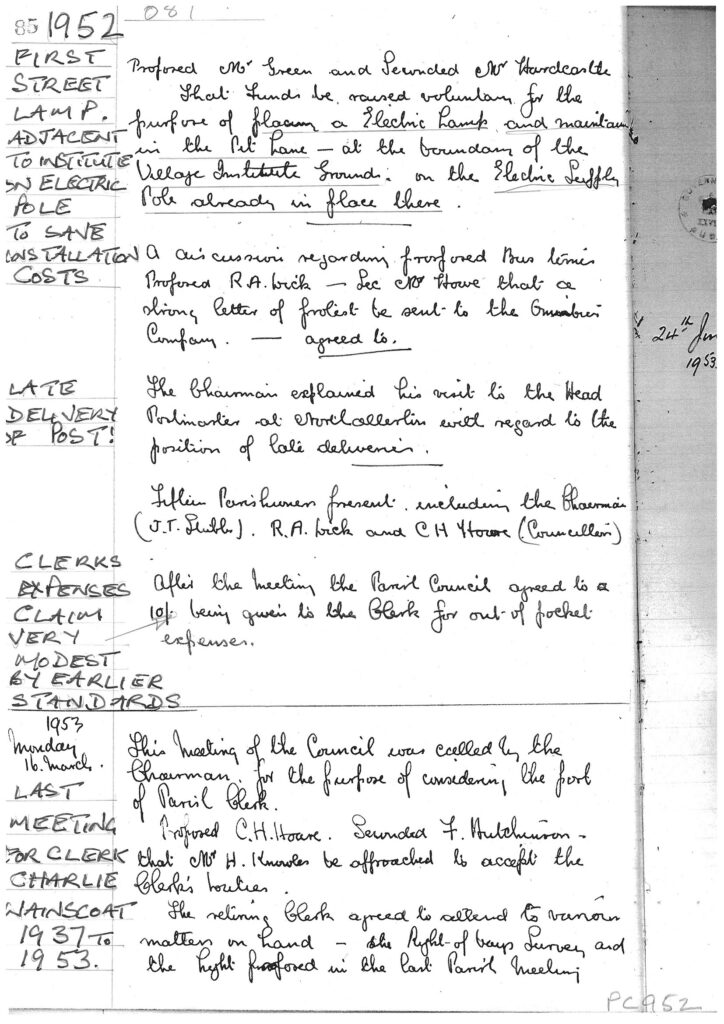 85 1952
081
FIRST
STREET
LAMP.
ADJACENT
TO INSTITUTE
ON ELECTRIC
POLE
TO SAVE
INSTALLATION
COSTS
Proposed Mr Green and Seconded Mr Hardcastle
That Funds be raised voluntary for the
purpose of placing a Electric Lamp and maintain
in the Pit Lane – at the boundary of the
Village Institute Ground. on the Electric Supply
Pole already in place there.
A discussion regarding proposed Bus times
Proposed R.A. Wick – Sec Mr Howe that a
strong letter of protest be sent to the Omnibus
Company. — agreed to.
24th
1953
LATE
DELIVERY
OF POST!
The Chairman explained his visit to the Head
Postmaster at Northallerton with regard to the
position of late deliveries.
Fifteen Parishioners present. including the Chairman
(J.T. Stubbs). R.A. Wick and C H Howe (Councillors)
CLERKS
EXPENSES
CLAIM
VERY
MODEST
BY EARLIER
STANDARDS
After the Meeting the Parish Council agreed to a
10/- being given to the Clerk for out of pocket
expenses.
1953
Monday
16. March.
LAST
MEETING
FOR CLERK
CHARLIE
WAINSCOAT
1937 TO
1953.
This Meeting of the Council was called by the
Chairman. for the purpose of considering the post
of Parish Clerk.
Proposed C.H. Howe. Seconded F. Hutchinson –
that Mr H. Knowles be approached to accept the
Clerk's Duties.
The retiring Clerk agreed to attend to various
matters on hand – the Right-of ways Survey and
the light proposed in the last Parish Meeting
PC952